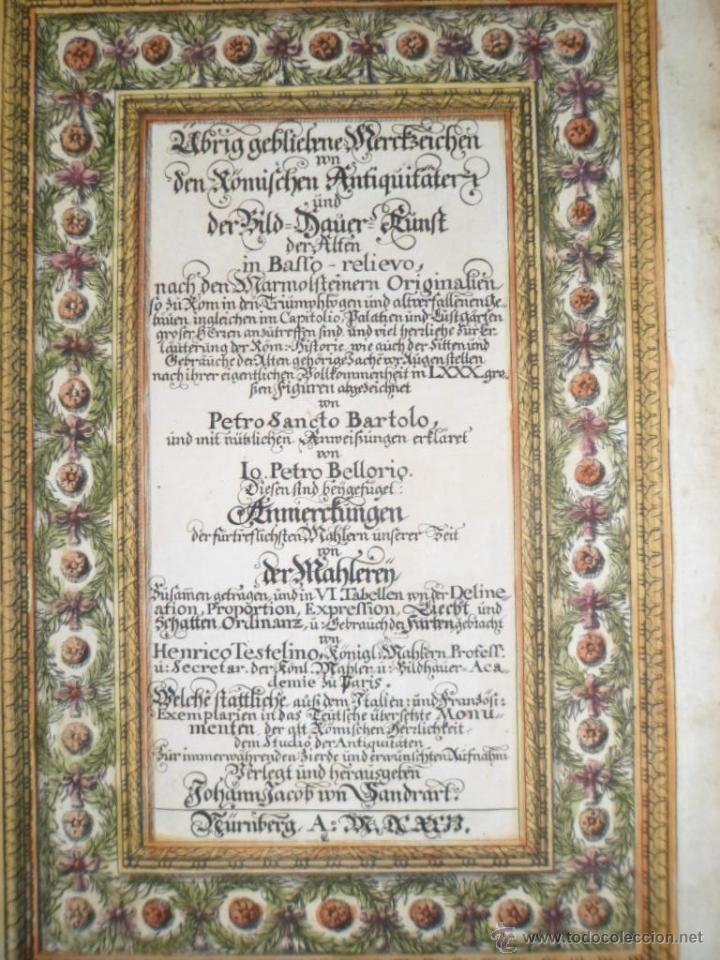 Übrig gebliebne Merckzeichen
von
den Römischen Antiquitäten
und
der Bild-Hauer-Kunst
der Alten
in Basso-relievo,
nach den Marmolsteinern Originalien
so zu Rom in den Triumphbogen und altverfallenen Ge-
bäuen ingleichen im Capitolio, Palatien und Lustgärten
groser Herren anzutreffen sind, und viel herrliche zur Er-
läuterung der Röm: Historie, wie auch der Sitten und
Gebräuche der Alten gehörige Sachen vor Augen stellen
nach ihrer eigentlichen Vollkommenheit in LXXX gro-
ßen Figuren abgezeichnet
von
Petro Sancto Bartolo,
und mit nützlichen Anweißungen erkläret
von
Io. Petro Bellorio.
Diesen sind beygefüget:
Anmerckungen
der fürtreflichsten Mahlern unserer Zeit
von
der Mahlerey
Zusamen getragen, und in VI. Tabellen von der Deline-
ation, Proportion, Expression, Liecht und
Schatten, Ordinanz, u: Gebrauch der Farben gebracht
von
Henrico Testelino, Königl: Mahlern, Profess:
u: Secretar. der Könl. Mahler u: Bildhauer-Aca-
demie zu Paris.
Welche stattliche, auß dem Italien: und Französi:
Exemplarien in das Teutsche übersetzte Monu-
menten, der alt Römischen Herrlichkeit
dem Studio der Antiquitäten
Zur immerwährenden Zierde und erwünschten Aufnahm
Verlegt und herausgeben
Johann Jacob von Sandrart.
Nürnberg, A:
www.todocoleccion.net